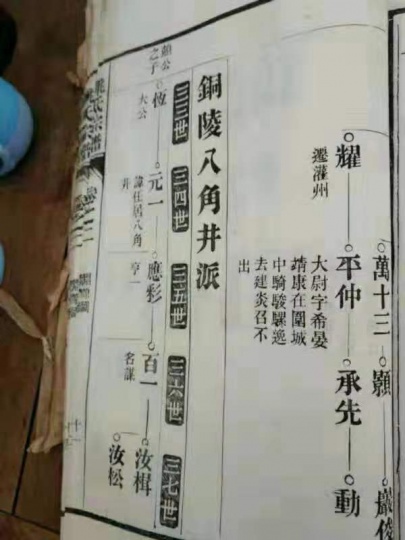 萬十三 顥 巖俊
耀 平仲 承先 動
遷灌州
大尉字希晏
靖康在圍城
中騎駿騾逸
去建炎召不
出
銅陵八角井派
三三世 三四世 三五世 三六世 三七世
顥公
之子
恆 元一 應彩 百一 汝楫
大公
諱任居八角
井
亨一
名謀
汝松
氏宗譜